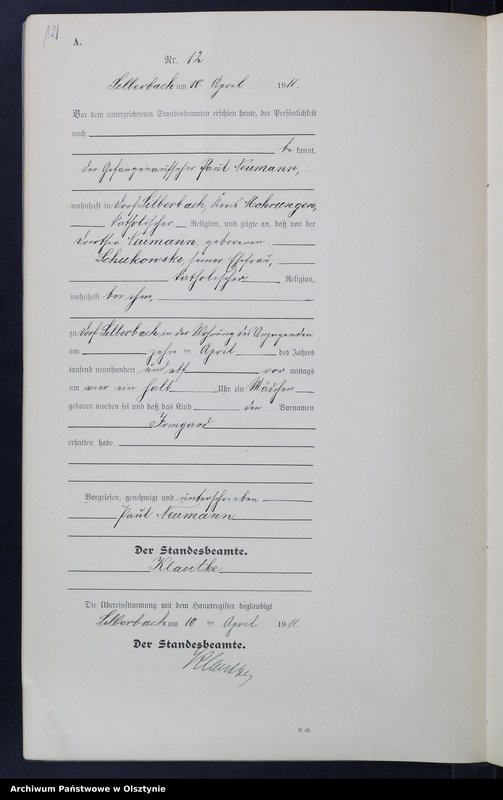 12
A.
Nr. 12
Silberbach am 10. April 1911.
Vor dem unterzeichneten Standesbeamten erschien heute, der Persönlichkeit
nach
be kannt,
der Gefangenaufseher Paul Neumann,
wohnhaft in Dorf Silberbach, Kreis Mohrungen,
katholischer Religion, und zeigte an, daß von der
Dorothea Neumann, geborenen
Schukowski, seiner Ehefrau,
katholischer Religion,
wohnhaft bei ihm,
zu Dorf Silberbach, in der Wohnung des Anzeigenden
am zehn ten April des Jahres
tausend neunhundert und elf vor mittags
um vier ein halb Uhr ein Mädchen
geboren worden sei und daß das Kind den Vornamen
Irmgard
erhalten habe.
Vorgelesen, genehmigt und unterschrieben
Paul Neumann
Der Standesbeamte.
Klautke.
Die Übereinstimmung mit dem Hauptregister beglaubigt
Silberbach am 10 ten April 1911.
Der Standesbeamte.
Klautke
Archiwum Państwowe w Olsztynie